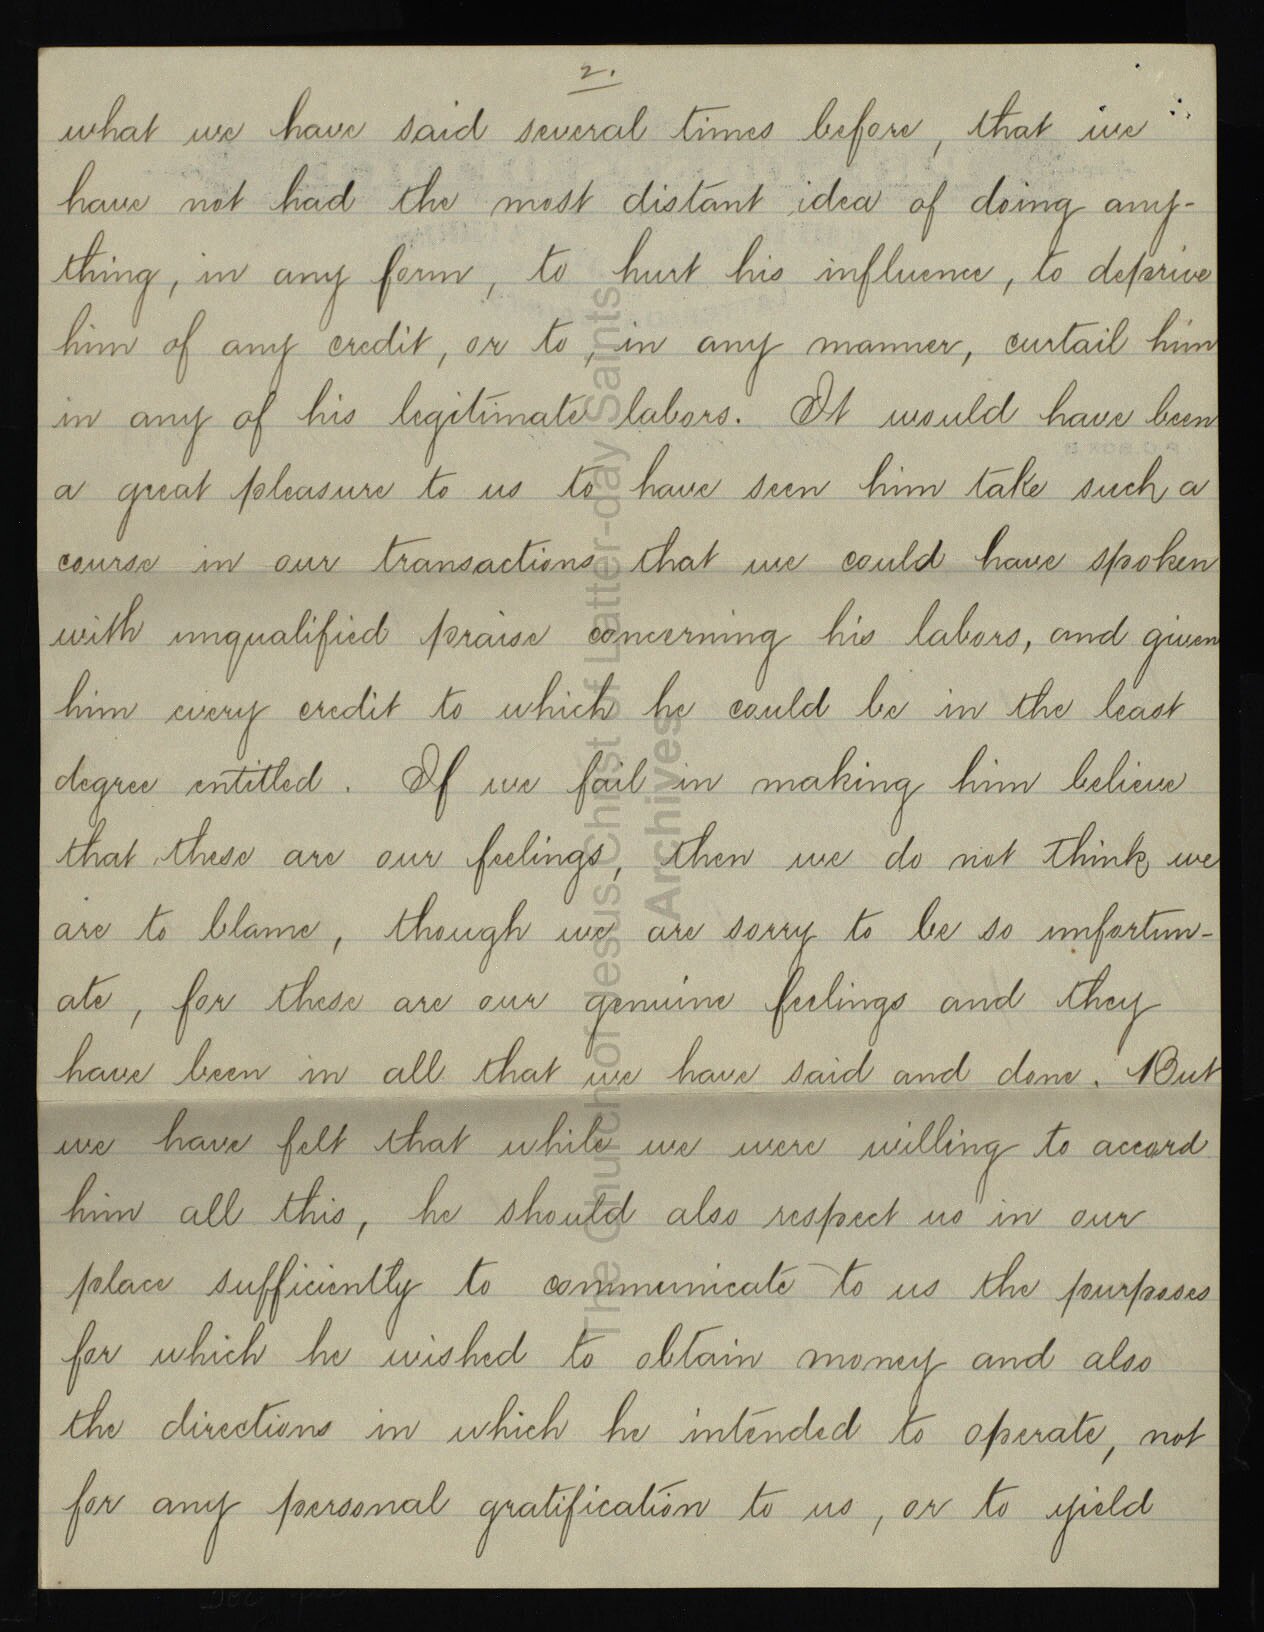 2.
what we have said several times before, that we
have not had the most distant idea of doing any-
thing, in any form, to hurt his influence, to deprive
him of any credit, or to, in any manner, curtail him
in any of his legitimate labors. It would have been
a great pleasure to us to have seen him take such a
course in our transactions that we could have spoken
with unqualified praise concerning his labors, and given
him every credit to which he could be in the least
degree entitled. If we fail in making him believe
that these are our feelings, then we do not think we
are to blame, though we are sorry to be so unfortun-
ate, for these are our genuine feelings and they
have been in all that we have said and done. But
we have felt that while we were willing to accord
him all this, he should also respect us in our
place sufficiently to communicate to us the purposes
for which he wished to obtain money and also
the directions in which he intended to operate, not
for any personal gratification to us, or to yield
The Church of Jesus Christ of Latter-day Saints
Archives